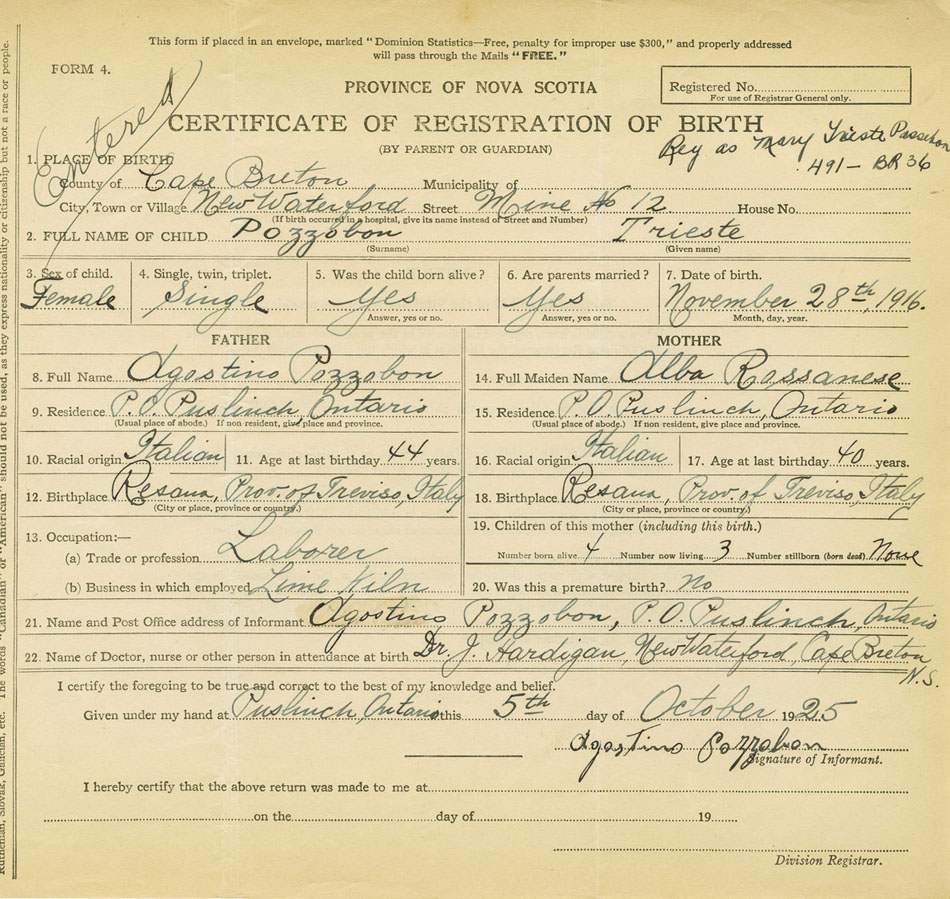 This form if placed in an envelope, marked "Dominion Statistics—Free, penalty for improper use $300," and properly addressed
will pass through the Mails "FREE."
FORM 4.
PROVINCE OF NOVA SCOTIA
Registered No.
For use of Registrar General only.
Entered
CERTIFICATE OF REGISTRATION OF BIRTH
(BY PARENT OR GUARDIAN)
Reg as Mary Trieste
491 - BR 36
1. PLACE OF BIRTH
County of Cape Breton Municipality of
City, Town or Village New Waterford Street Mine No 12 House No.
(If birth occurred in a hospital, give its name instead of Street and Number)
2. FULL NAME OF CHILD Pozzobon Trieste
(Surname) (Given name)
3. Sex of child. 4. Single, twin, triplet. 5. Was the child born alive? 6. Are parents married? 7. Date of birth.
Female Single Yes Yes November 28th, 1916.
Answer, yes or no. Answer, yes or no. Month, day, year.
FATHER MOTHER
8. Full Name Agostino Pozzobon 14. Full Maiden Name Alba Rossanese
9. Residence P.O. Puslinch, Ontario 15. Residence P.O. Puslinch, Ontario
(Usual place of abode.) If non resident, give place and province. (Usual place of abode.) If non resident, give place and province.
10. Racial origin Italian 11. Age at last birthday 44 years. 16. Racial origin Italian 17. Age at last birthday 40 years.
12. Birthplace Resana, Prov. of Treviso, Italy 18. Birthplace Resana, Prov. of Treviso, Italy
(City or place, province or country.) (City or place, province or country.)
13. Occupation:— 19. Children of this mother (including this birth.)
(a) Trade or profession Laborer Number born alive 4 Number now living 3 Number stillborn (born dead) None
(b) Business in which employed Lime Kiln 20. Was this a premature birth? No
21. Name and Post Office address of Informant Agostino Pozzobon, P.O. Puslinch, Ontario
22. Name of Doctor, nurse or other person in attendance at birth Dr. J. Hardigan, New Waterford, Cape Breton
N.S.
I certify the foregoing to be true and correct to the best of my knowledge and belief.
Given under my hand at Puslinch, Ontario this 5th day of October 1925
Agostino Pozzobon
Signature of Informant.
I hereby certify that the above return was made to me at
on the day of 19
Division Registrar.
Ruthenian, Slovak, Galician, etc. The words "Canadian" or "American" should not be used, as they express nationality or citizenship but not a race or people.